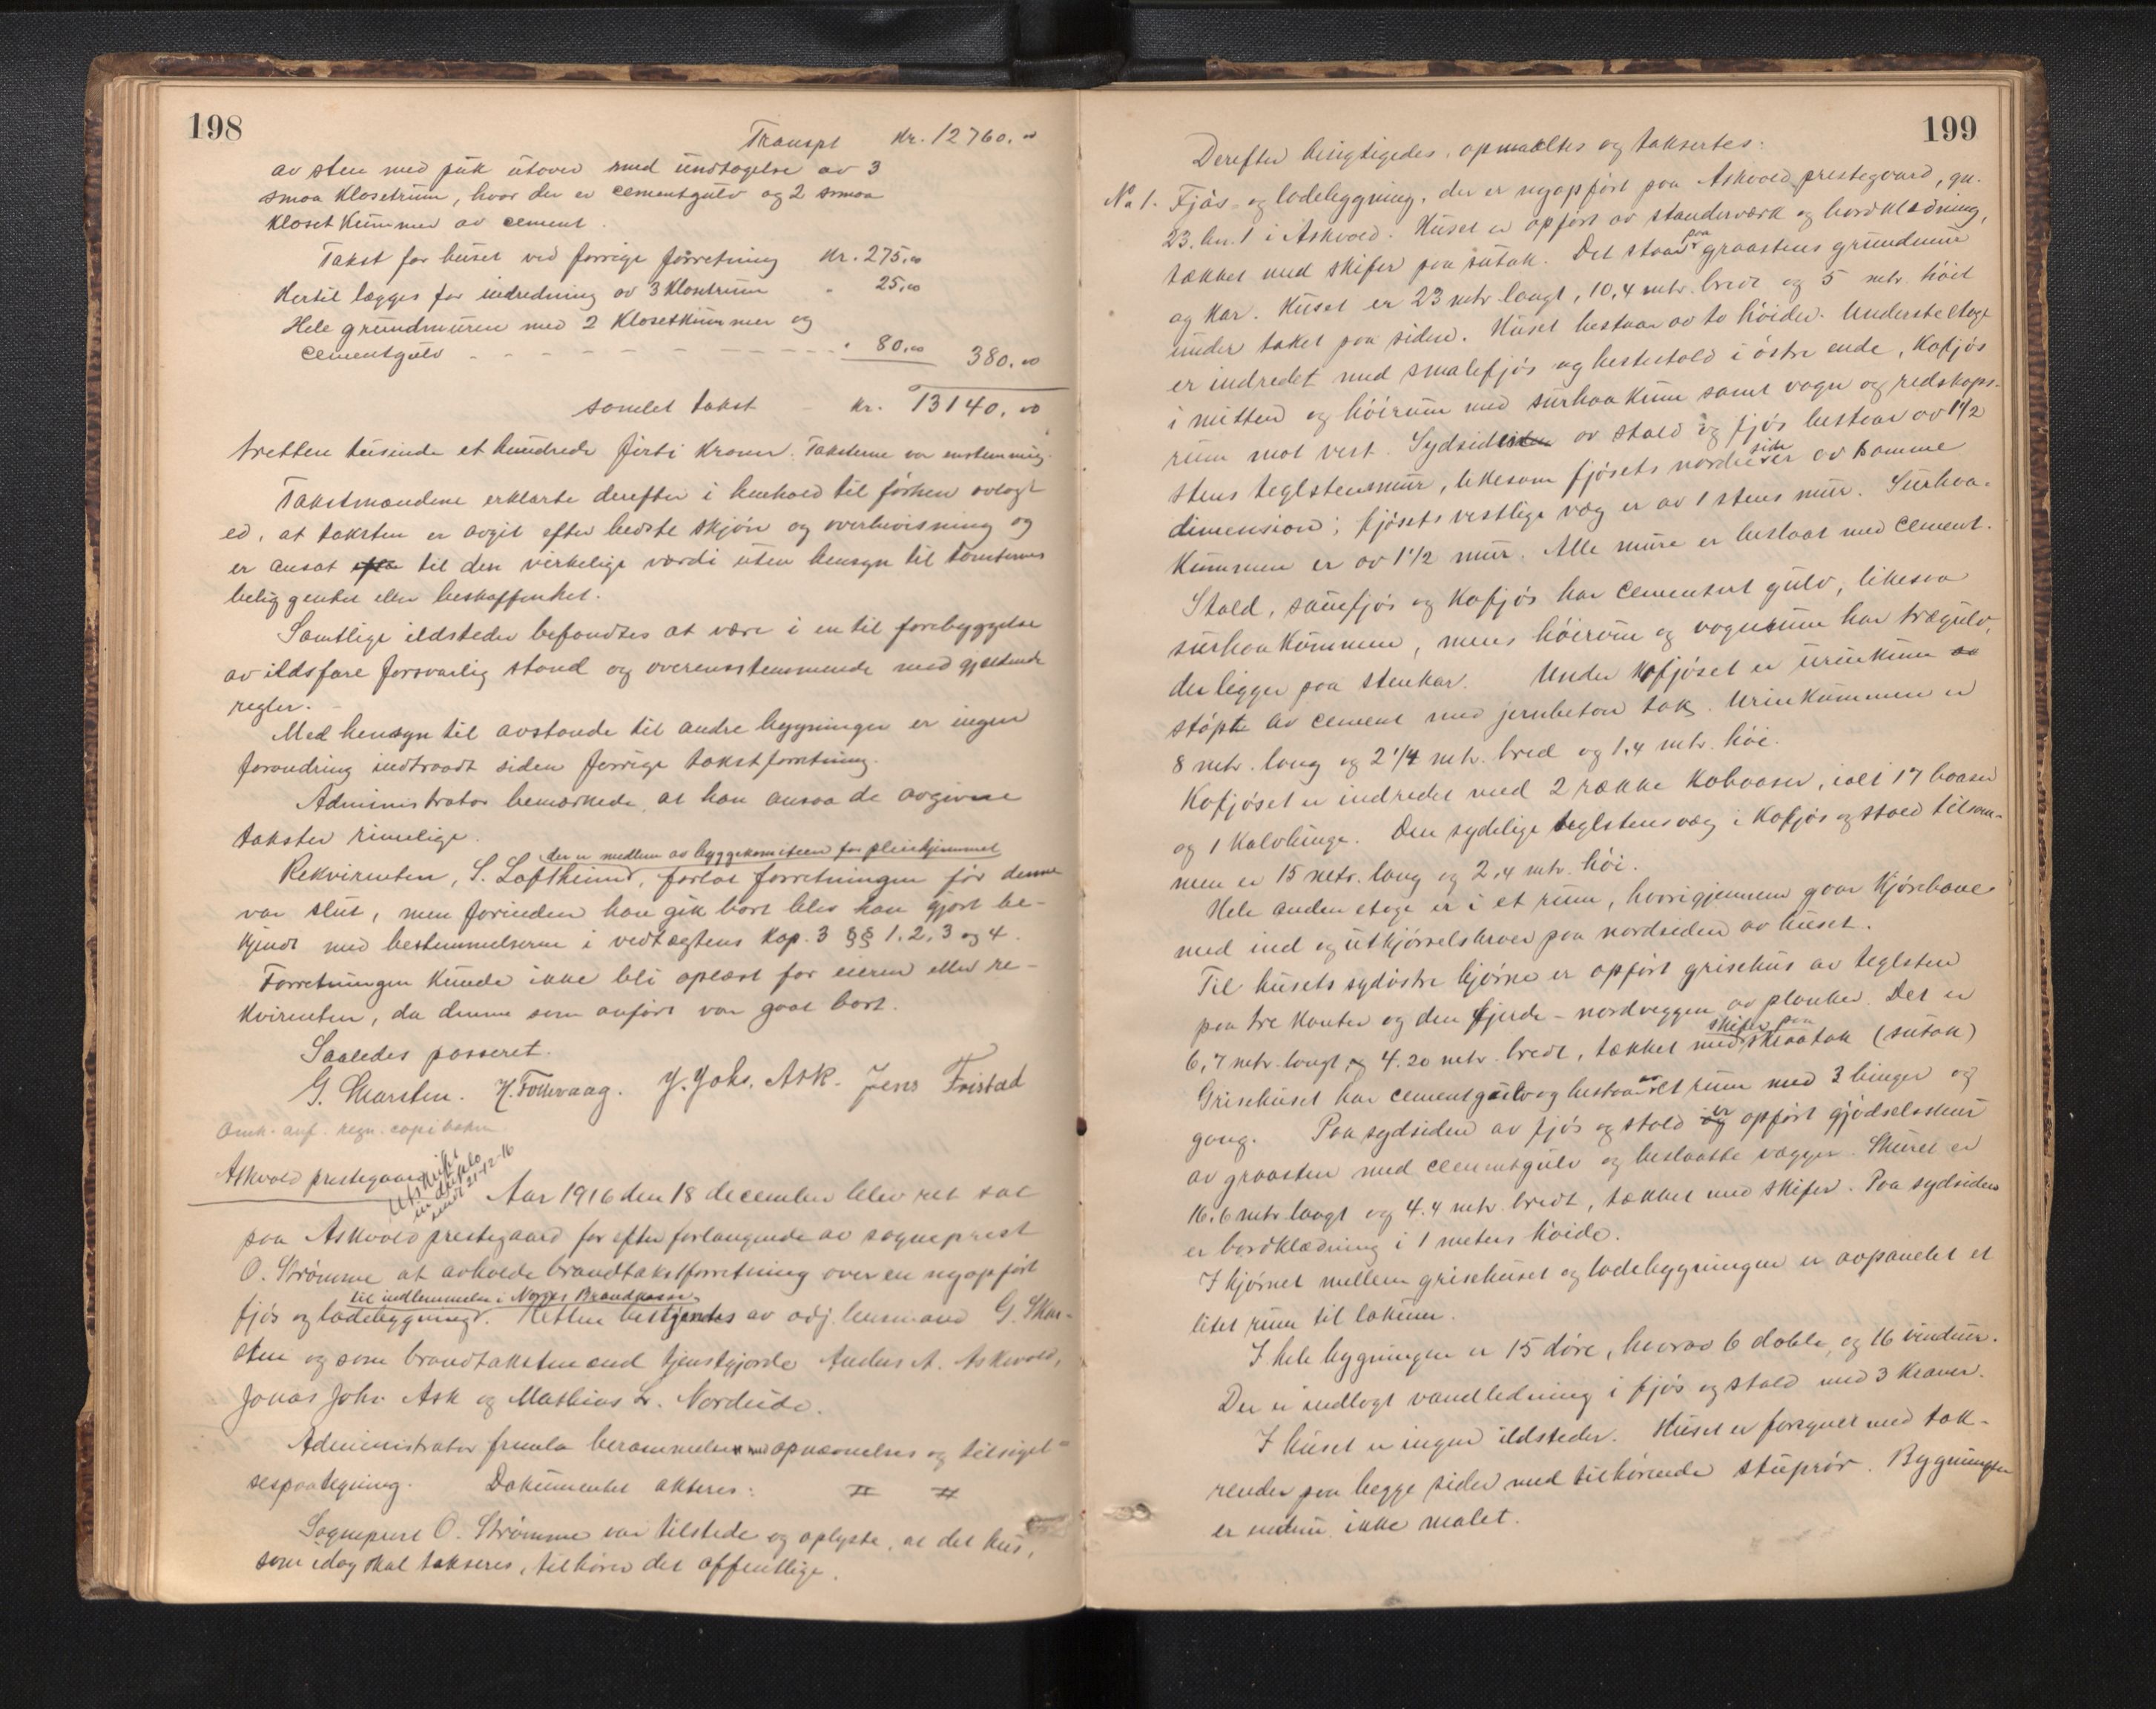 198
Transpt Kr. 12760.00
av sten med puk utover med undtagelse av 3
smaa Klosetrum, hvor der er cementgulv og 2 smaa
Kloset Kummer av cement.
Takst for huset ved forrige forretning Kr. 275.00
Hertil lægges for indredning av 3 Klosetrum " 25.00
Hele grundmuren med 2 Klosetkummer og
cementgulv - - - - - - - " 80.00 380.00
samlet takst - Kr. 13140.00
tretten tusinde et hundrede firti Kroner. Taksterne var enstemmig.
Takstmændene erklærte derefter i henhold til førhen avlagt
ed, at taksten er avgit efter bedste skjøn og overbevisning og
er ansat efter til den virkelige værdi uten hensyn til tomternes
beliggenhet eller beskaffenhet.
Samtlige ildsteder befandtes at være i en til forebyggelse
av ildsfare forsvarlig stand og overensstemmende med gjældende
regler. -
Med hensyn til avstande til andre bygninger er ingen
forandring indtraadt siden forrige takstforretning.
Administrator bemærkede, at han ansaa de avgivne
takster rimelige.
der er medlem av byggekomiteen for pleiehjemmet
Rekvirenten, S. Loftheim, forlot forretningen før denne
var slut, men forinden han gik bort blev han gjort be-
kjendt med bestemmelserne i vedtægtens Kap. 3 §§ 1. 2. 3 og 4.
Forretningen Kunde ikke bli oplæst for eieren eller re-
kvirenten, da denne som anført var gaat bort.
Saaledes passeret.
G. Skarsten. H. Follevaag. J. Johs. Ask. Jens Fristad
Omk. anf. regn. copiboken
Askvold prestegaard
Utskrift
in duplo
sendt 21-12-16
Aar 1916 den 18 december blev ret sat
paa Askvold prestegaard for efter forlangende av sogneprest
O. Strømme at avholde brandtakstforretning over en nyopført
til indlemmelse i Norges Brandkasse.
fjøs og ladebygning. Retten betjentes av adj. lensmand G. Skar-
sten og som brandtakstmænd tjenstgjorde Anders A. Askvold,
Jonas Johs. Ask og Mathias L. Nordeide.
Administrator fremla berammelse med opnævnelses og tilsigel-
sespaategning. Dokumentet akteres: II II
Sogneprest O. Strømme var tilstede og oplyste, at det hus,
som idag skal takseres, tilhører det offentlige.
199
Derefter besigtigedes, opmaaltes og taksertes:
No 1. Fjøs- og ladebygning, der er nyopført paa Askvold prestegaard, gn.
23. bn. 1 i Askvold. Huset er opført av standerværk og bordklædning,
tækket med skifer paa sutak. Det staar paa graastens grundmur
og Kar. Huset er 23 mtr. langt, 10,4 mtr. bredt og 5 mtr. høit
under taket paa siden. Huset bestaar av to høider. Underste etage
er indredet med smalefjøs og hestestald i østre ende, Kofjøs
i mitten og høirum med surhaakum samt vogn og redskaps-
rum mot vest. Sydsiden av stald og fjøs bestaar av 1 1/2
stens teglstensmur, likesom fjøsets nordre side er av samme
dimension; fjøsets vestlige væg er av 1 stens mur. Surhaa-
Kummen er av 1 1/2 mur. Alle mure er beslaat med cement.
Stald, sauefjøs og Kofjøs har cementert gulv, likesaa
surhaa Kummen, mens høirum og vognrum har trægulv,
der ligger paa stenkar. Under Kofjøset er urinkum
støpt av cement med jernbeton tak. Urinkummen er
8 mtr. lang og 2 1/4 mtr. bred og 1.4 mtr. høi.
Kofjøset er indredet med 2 rækker Kobaaser, ialt 17 baaser
og 1 Kalvbinge. Den sydelige teglstensvæg i Kofjøs og stald tilsam-
men er 15 metr. lang og 2,4 mtr. høi.
Hele anden etage er i et rum, hvorigjennem gaar Kjørebane
med ind og utkjørselsbroer paa nordsiden av huset.
Til husets sydøstre hjørne er opført grisehus av teglsten
paa tre Kanter og den fjerde - nordveggen av planker. Det er
6,7 mtr. langt og 4.20 mtr. bredt, tækket med skifer paa skraatak (sutak)
Grisehuset har cementgulv og bestaar av et rum med 3 binger og
gang. Paa sydsiden av fjøs og stald er opført gjødselsskur
av graasten med cementgulv og beslaatte vægger. Skuret er
16.6 mtr. langt og 4.4 mtr. bredt, tækket med skifer. Paa sydsiden
er bordklædning i 1 meters høide.
I hjørnet mellem grisehuset og ladebygningen er avpanelet et
litet rum til lokum.
I hele bygningen er 15 døre, hvorav 6 doble, og 16 vinduer.
Der er indlagt vandledning i fjøs og stald med 3 Kraner.
I huset er ingen ildsteder. Huset er forsynet med tak-
render paa begge sider med tilhørende stuprør. Bygningen
er endnu ikke malet.